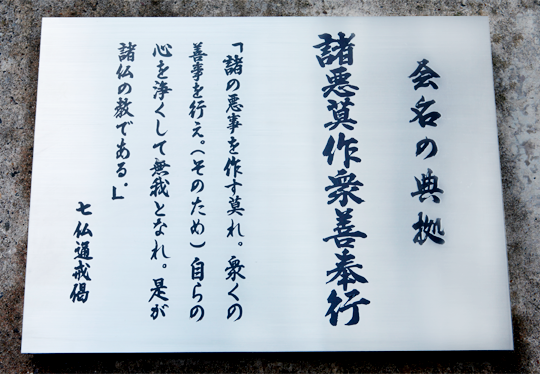 会名の典拠
諸悪莫作衆善奉行
「諸の悪事を作す莫れ。衆くの
善事を行え。(そのため)自らの
心を浄くして無我となれ。是が
諸仏の教である。」
七仏通戒偈